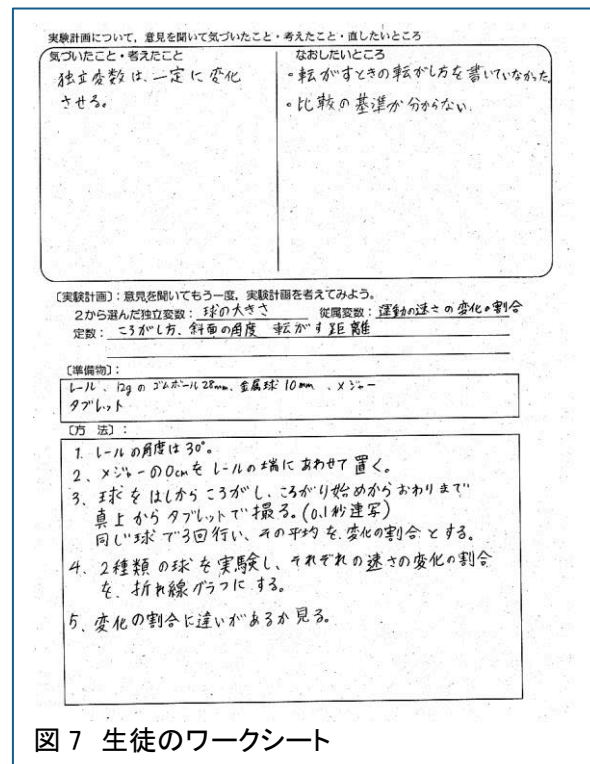 実験計画について，意見を聞いて気づいたこと・考えたこと・直したいところ
気づいたこと・考えたこと
独立変数は、一定に変化
させる。
なおしたいところ
・転がすときの転がし方を書いていなかった。
・比較の基準が分からない.
〔実験計画〕：意見を聞いてもう一度，実験計画を考えてみよう。
2から選んだ独立変数：球の大きさ 従属変数：運動の速さの変化の割合
定数：ころがし方、斜面の角度 転がす距離
〔準備物〕：
レール、12gのゴムボール28mm、金属球10mm、メジャー
タブレット
〔方 法〕：
1. レールの角度は30°。
2、メジャーの0cmをレールの端にあわせて置く。
3、球をはしからころがし、ころがり始めからおわりまで
真上からタブレットで撮る。(0.1秒連写)
同じ球で3回行い、その平均を、変化の割合とする。
4、2種類の球を実験し、それぞれの速さの変化の割合
を、折れ線グラフにする。
5、変化の割合に違いがあるか見る。
図7 生徒のワークシート